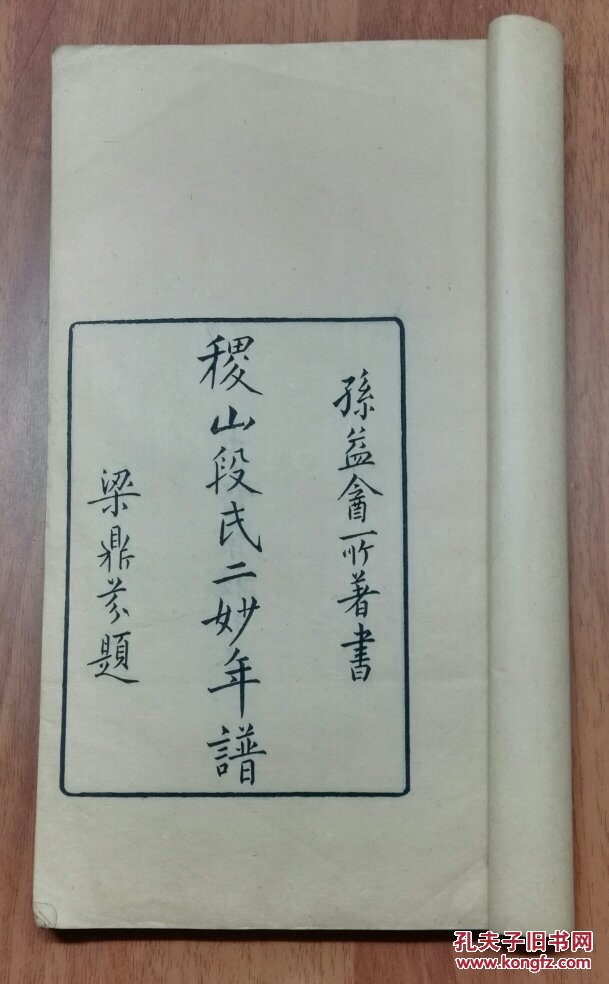 孫益盦所著書
稷山段氏二妙年譜
梁鼎芬題
孔夫子旧书网
www.kongfz.com